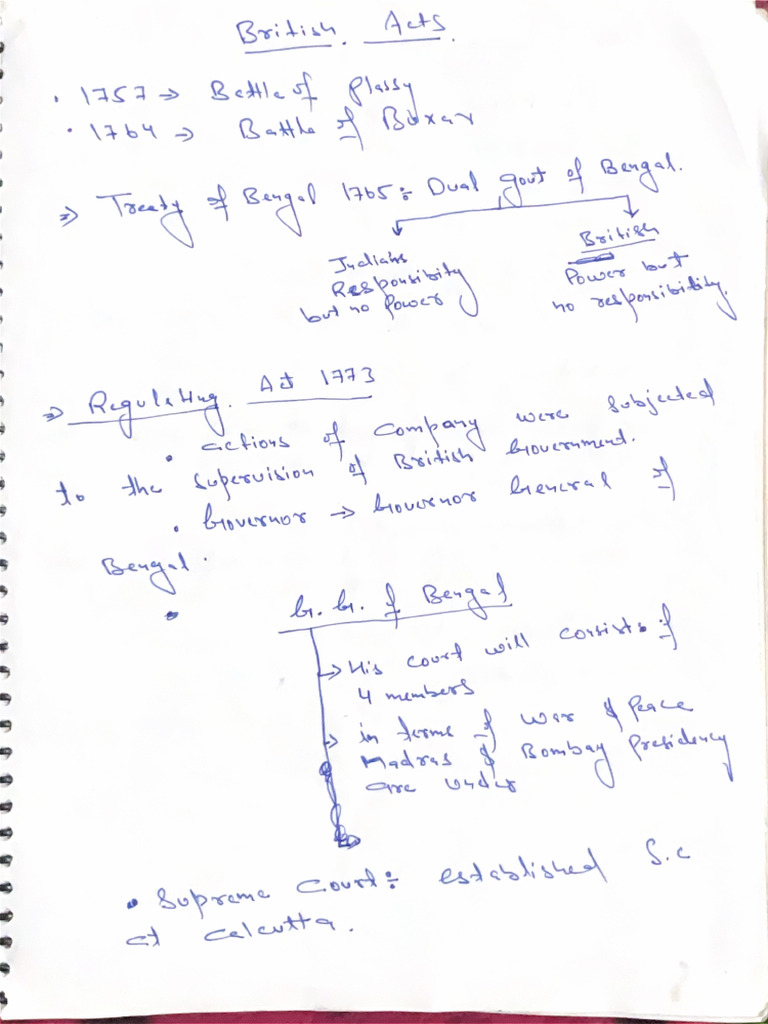 British Acts.
• 1757 → Battle of Plassy
• 1764 → Battle of Buxar
⇒ Treaty of Bengal 1765 ÷ Dual govt of Bengal.
Indians
Responsibity
but no Power
British
Power but
no responsibility.
⇒ Regulating Act 1773
• actions of Company were subjected
to the supervision of British Government.
• Governor → Governor General of
Bengal.
G. G. of Bengal
→ His court will consists of
4 members
→ in terms of war & Peace
Madras & Bombay Presidency
are under
• Supreme Court ÷ established S.C
at Calcutta.